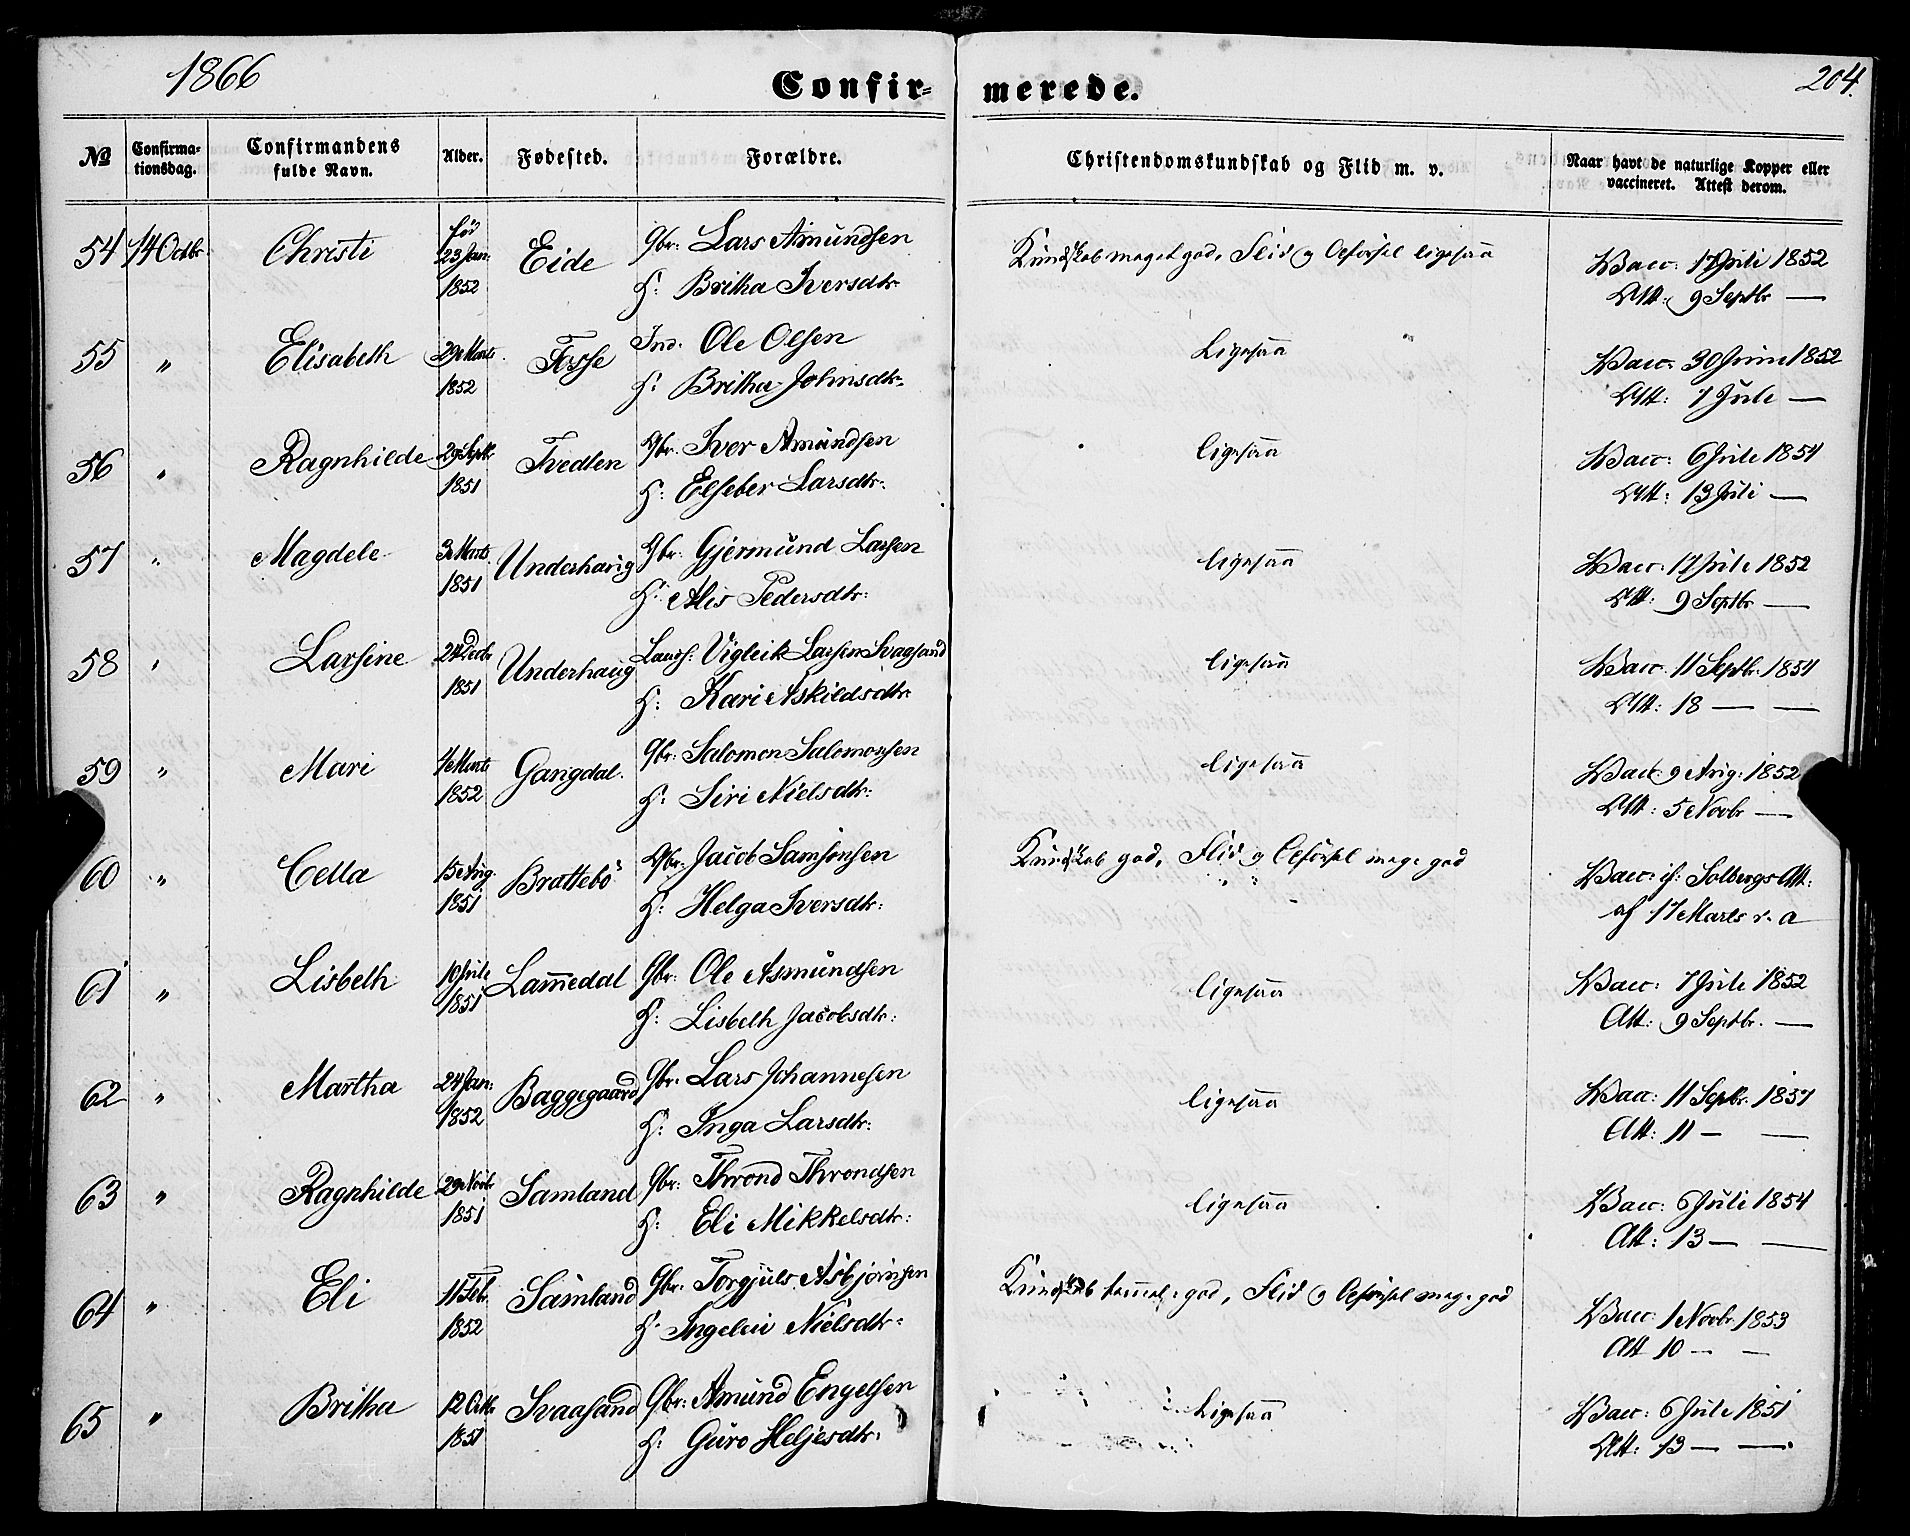 1866
Confir-
merede.
204.
No
Confirma-
tionsdag.
Confirmandens
fulde Navn.
Alder.
Fødested.
Forældre.
Christendomskundskab og Flid m. v.
Naar havt de naturlige Kopper eller
vaccineret. Attest derom.
54 14 Octbr Christi fød 23 Jan: 1852 Eide Gbr: Lars Amundsen
H: Britha Iversdtr
Kundskab meget god, Flid og Opførsel ligesaa
Vacc: 17 Juli 1852
Att: 9 Septbr —
55 " Elisabeth 29 Marts 1852 Fosse Ind. Ole Olsen
H: Britha Johnsdtr
Ligesaa
Vacc: 30 Juni 1852
Att: 7 Jule —
56 " Ragnhilde 29 Septr 1851 Tvedten Gbr. Iver Amundsen
H: Elseber Larsdtr:
ligesaa
Vacc: 6 Jule 1854
Att: 13 Juli —
57 " Magdele 3 Marts 1851 Underhaug Gbr: Gjermund Larsen
H: Alis Pedersdtr:
ligesaa
Vacc: 17 Jule 1852
Att: 9 Septbr —
58 " Larsine 24 Decbr 1851 Underhaug Vigleik Larsen Svaasand
H: Kari Askildsdtr
ligesaa
Vacc: 11 Septbr. 1854
Att: 18 — —
59 " Mari 4 Marts 1852 Gangdal. Gbr: Salomon Salomonsen
H: Siri Nielsdtr:
ligesaa
Vacc: 9 Aug: 1852
Att: 5 Novbr —
60 " Cella 15 Aug. 1851 Brattebö Gbr: Jacob Samsonsen
H: Helga Iversdtr:
Kundskab god, Flid og Opførsel meget god
Vacc: if: Solbergs Att:
af 17 Marts v. a
61 " Lisbeth 10 Jule 1851 Lam̄edal Gbr: Ole Asmundsen
H: Lisbeth Jacobsdtr:
ligesaa
Vacc: 7 Jule 1852
Att: 9 Septbr. —
62 " Martha 24 Jan: 1852 Baggegaard Gbr. Lars Johannesen
H: Inga Larsdtr:
ligesaa
Vacc: 11 Septbr. 1857
Att: 11 — —
63 " Ragnhilde 29 Novbr 1851 Samland Gbr: Thrond Throndsen
H: Eli Mikkelsdtr:
ligesaa
Vacc: 6 Juli 1854
Att: 13 — —
64 " Eli 11 Feb. 1852 Samland Gbr: Torgjuls Asbjørnsen
H: Ingeleiv Nielsdtr:
Kundskab tem̄el: god, Flid og Opførsel meget god
Vacc: 1 Novbr. 1853
Att 10 — —
65 " Britha 12 Octbr 1851 Svaasand Gbr: Amund Engelsen
H: Guro Heljesdtr:
Ligesaa
Vacc: 6 Jule 1851
Att: 13 — —